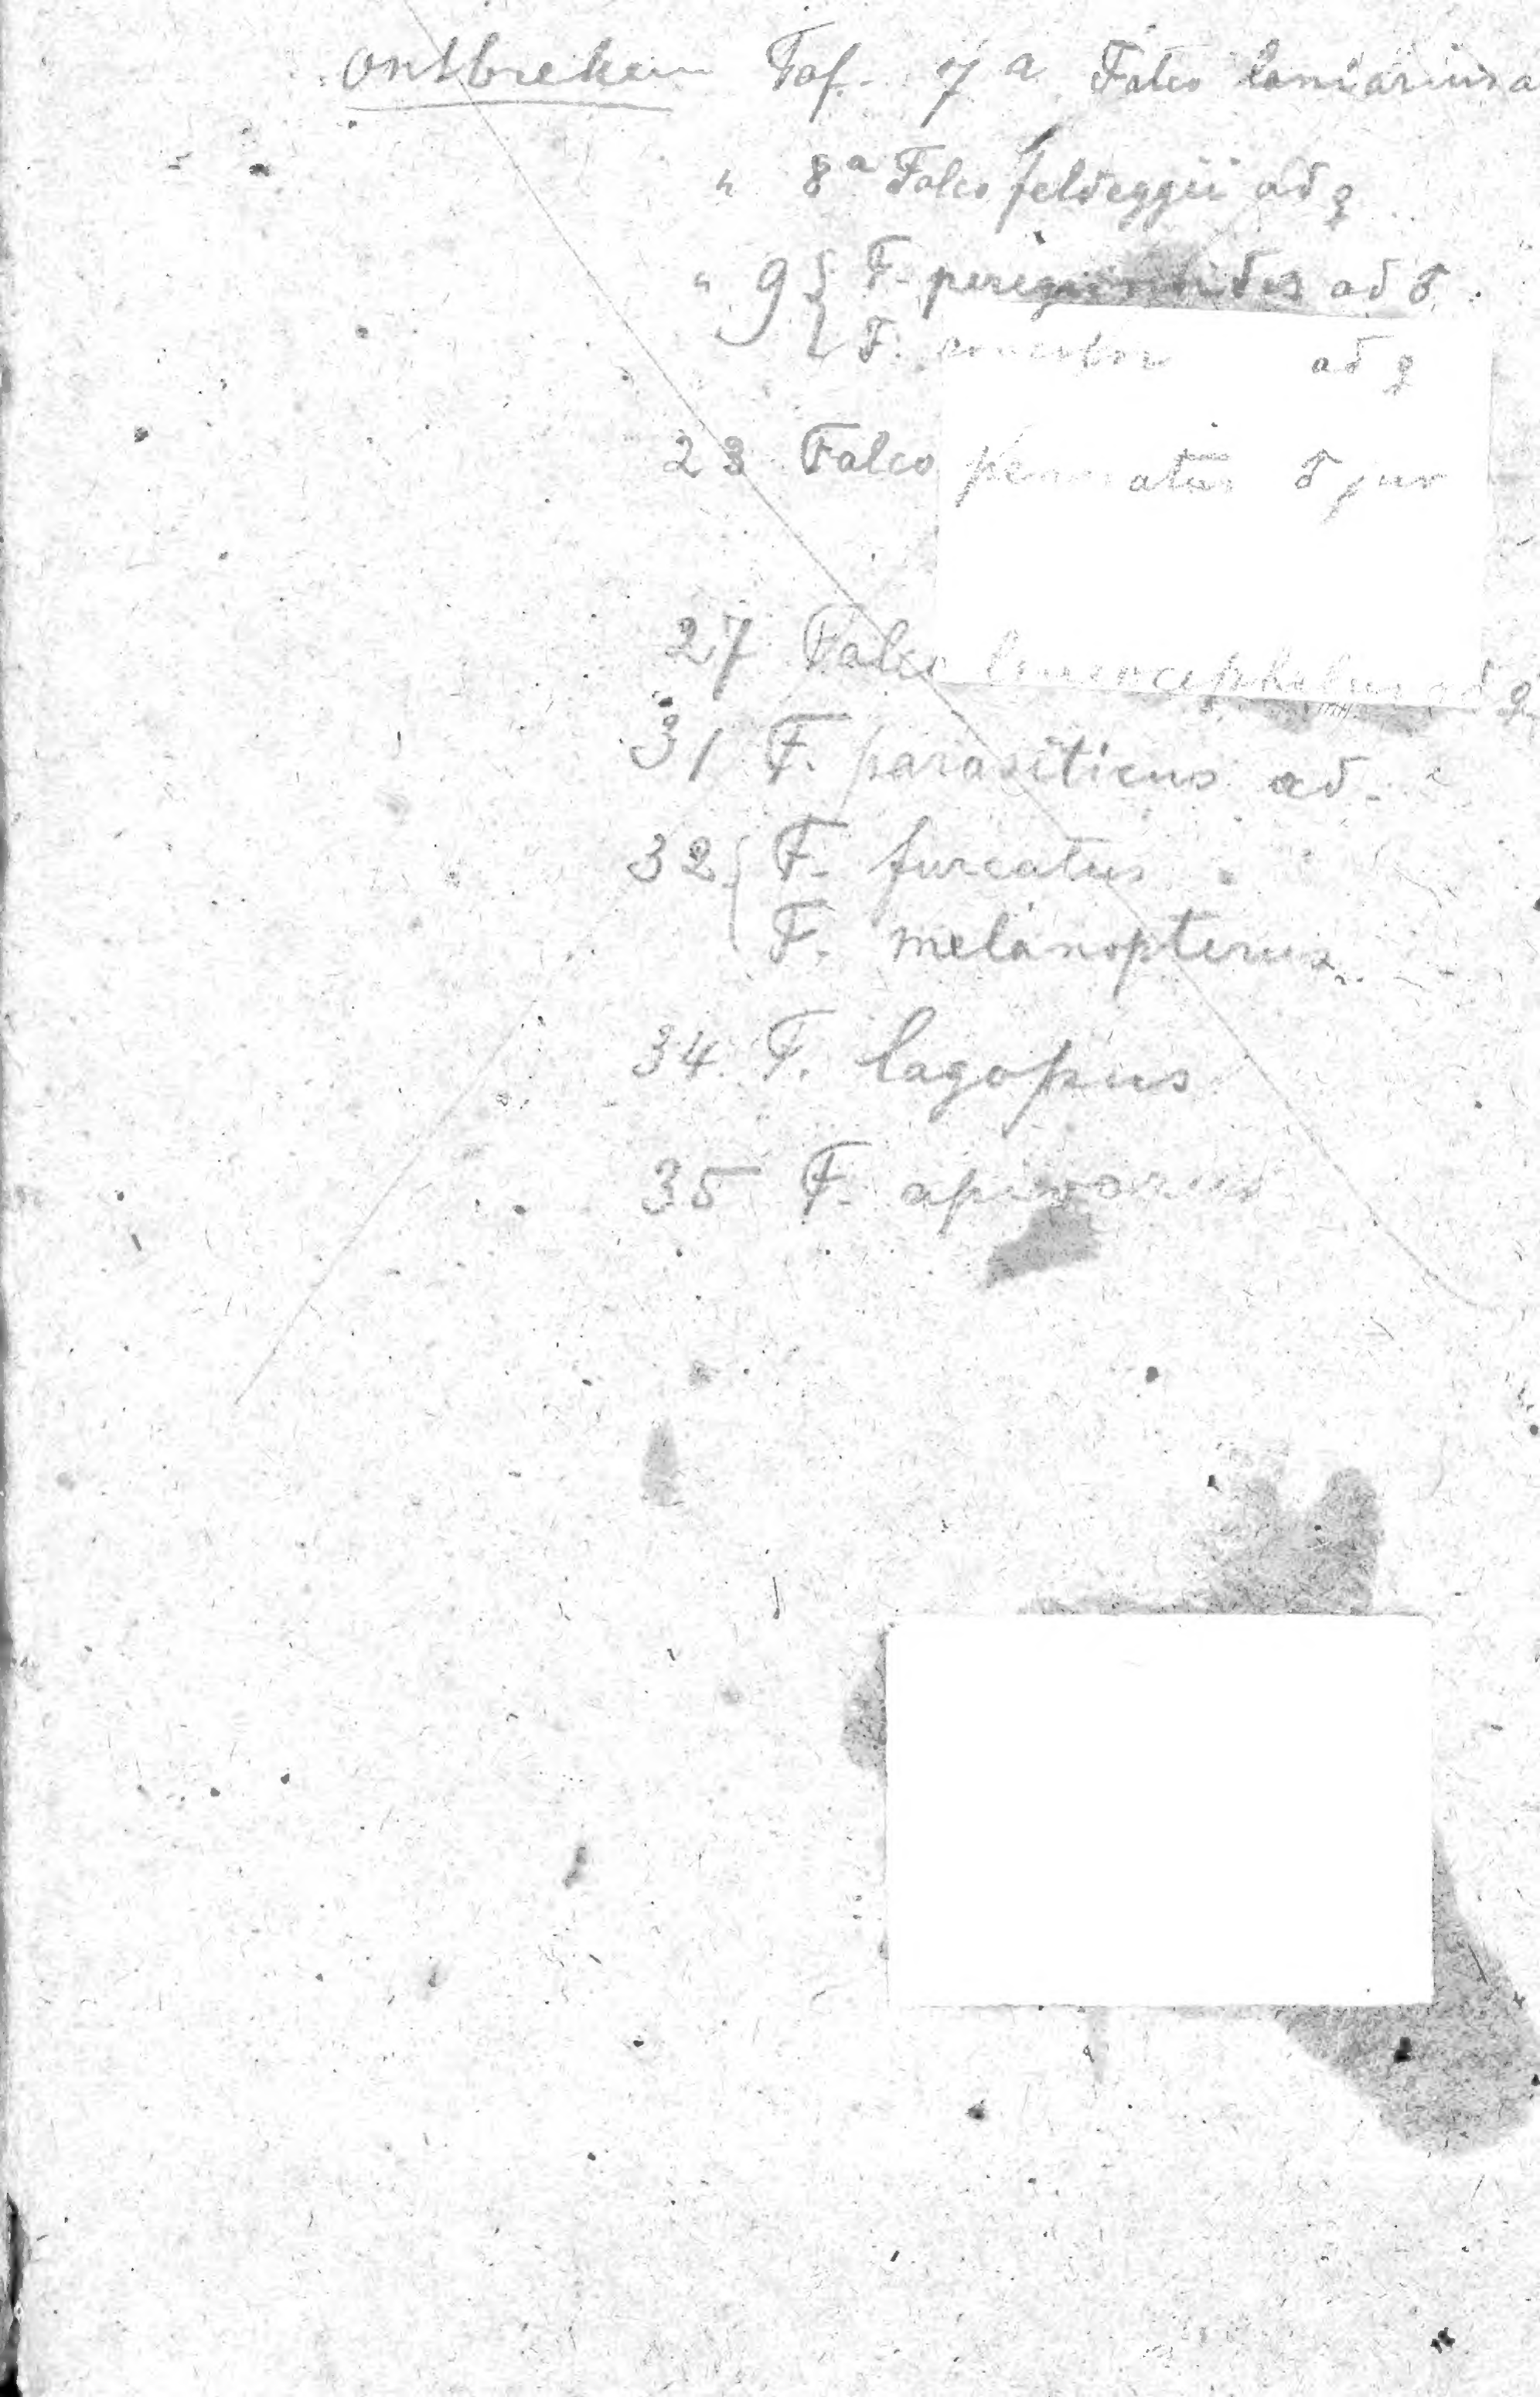 ontbreken Taf. 7 a Falco laniarius a
" 8 a Falco feldeggii ad ♀
" 9 { F. peregrinoides ad ♂
F. concolor ad ♀
23 Falco pennatus ♂ juv
27 Falco leucocephalus ad ♀
31 F. parasiticus ad.
32 { F. furcatus
F. melanopterus
34. F. lagopus
35 F. apivorus